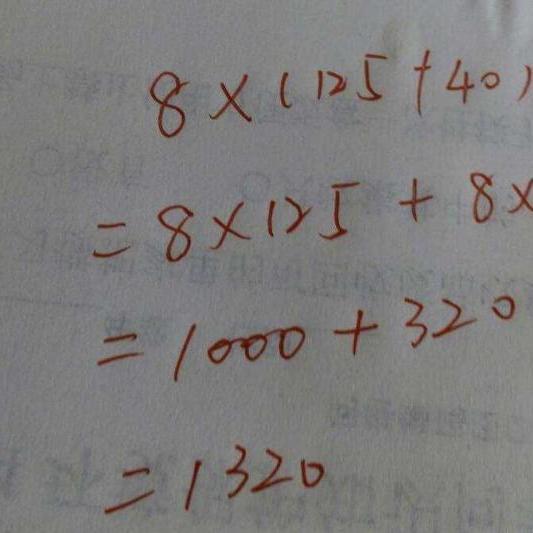 8×(125+40)
=8×125+8×
=1000+320
=1320